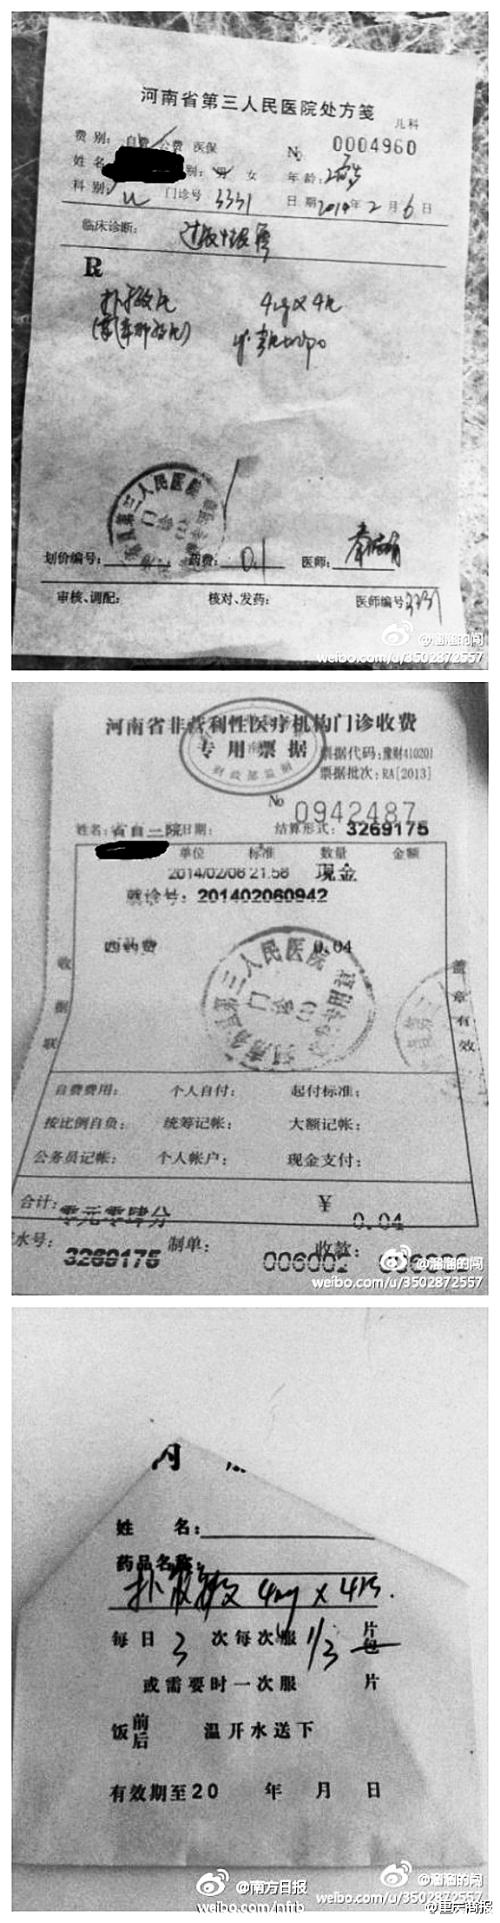 河南省第三人民医院处方笺
儿科
费别: 自费 公费 医保
№ 0004960
姓名 别: 男 女 年龄:
科别: 门诊号 3331 日期 2014年2月6日
临床诊断:
R
扑敏 4mg×4片
河南省第三人民医院
门诊
划价编号: 药费: 0.1 医师:
审核、调配: 核对、发药: 医师编号3331
@溜溜的闯
weibo.com/u/3502872557
河南省非营利性医疗机构门诊收费
专用票据
财政部监制
票据代码: 豫财410201
票据批次: RA[2013]
№ 0942487
姓名: 省直三院 日期: 结算形式: 3269175
单位 标准 数量 金额
2014/02/06 21:58 现金
就诊号: 201402060942
西药费 0.04
收据联
盖章有效
第三人民医院
门诊
自费费用: 个人自付: 起付标准:
按比例自负: 统筹记帐: 大额记帐:
公务员记帐: 个人帐户: 现金支付:
合计: 零元零肆分 ¥ 0.04
水号: 3269175 制单: 006002 收款:
@溜溜的闯
weibo.com/u/3502872557
姓 名:
药品名称:
扑敏 4mg×4片.
每日 3 次每次服 1/3 片包
或需要时一次服 片
饭前后 温开水送下
有效期至20 年 月 日
@南方日报
weibo.com/nfrb
@溜溜的闯
weibo.com/u/3502872557
@重庆商报